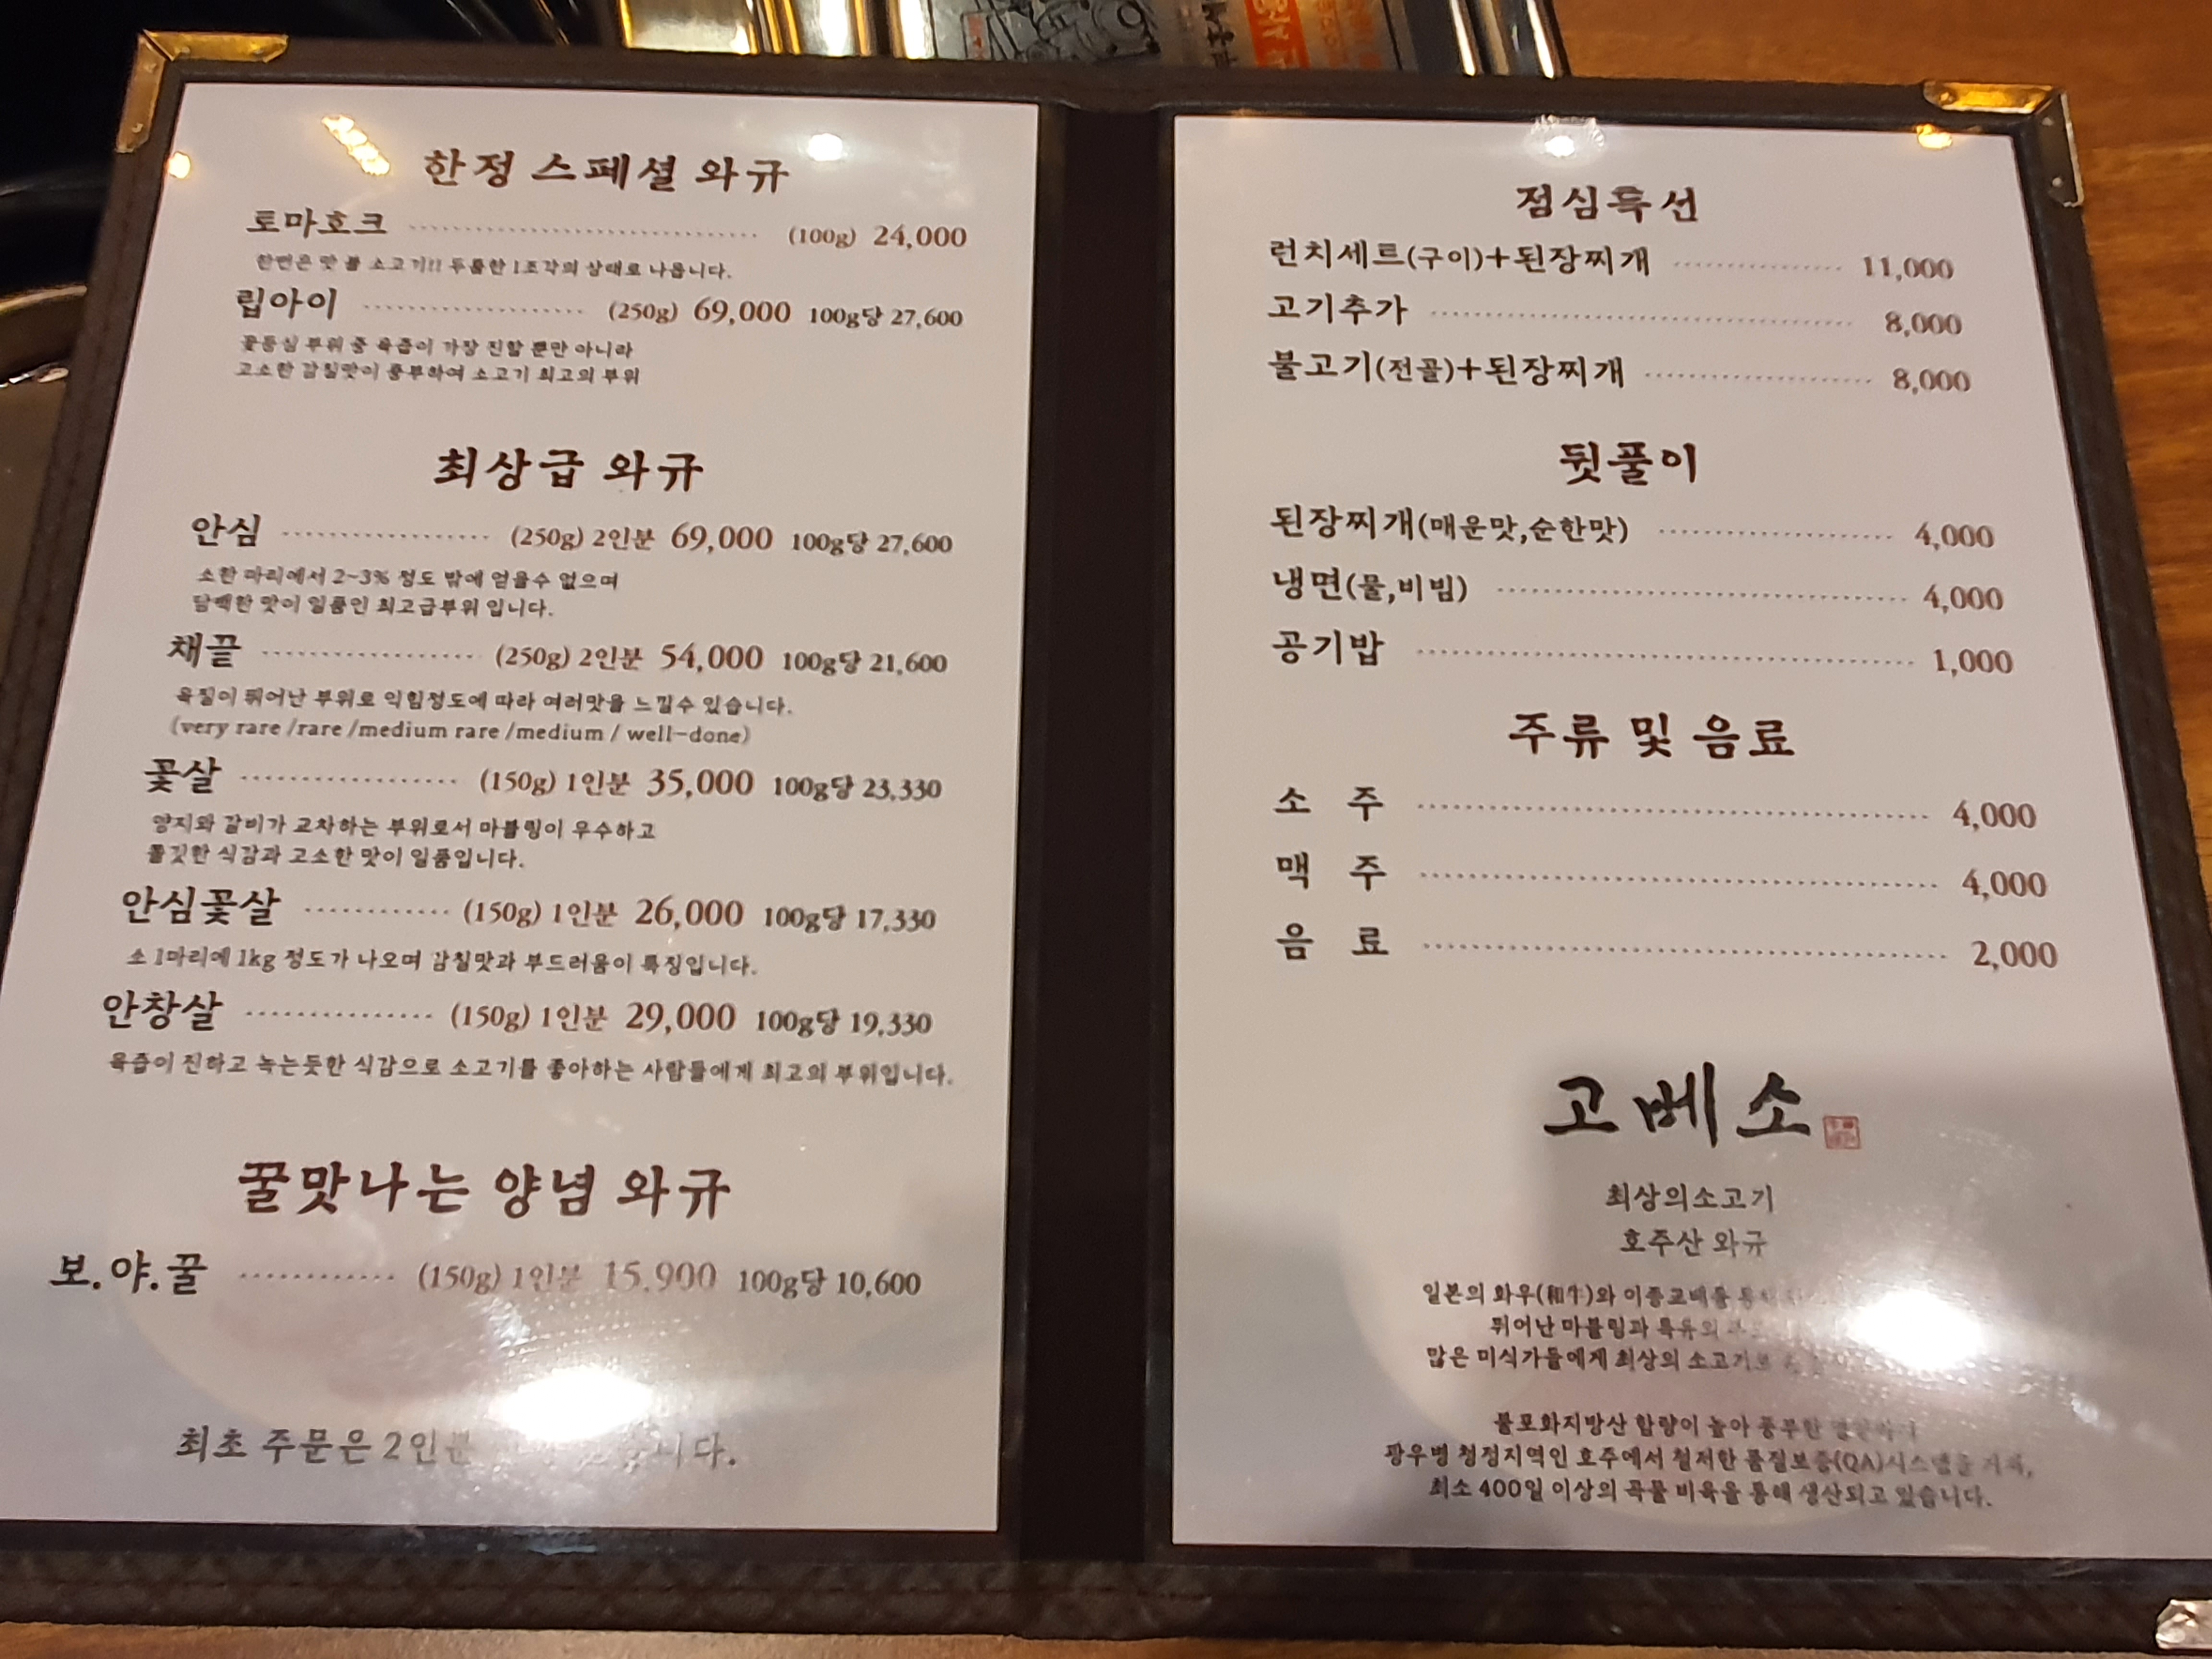 한정 스페셜 와규
토마호크 (100g) 24,000
한번은 맛 볼 소고기!! 두툼한 1조각의 상태로 나옵니다.
립아이 (250g) 69,000 100g당 27,600
꽃등심 부위 중 육즙이 가장 진할 뿐만 아니라
고소한 감칠맛이 풍부하여 소고기 최고의 부위
최상급 와규
안심 (250g) 2인분 69,000 100g당 27,600
소한 마리에서 2~3% 정도 밖에 얻을수 없으며
담백한 맛이 일품인 최고급부위 입니다.
채끝 (250g) 2인분 54,000 100g당 21,600
육질이 뛰어난 부위로 익힘정도에 따라 여러맛을 느낄수 있습니다.
(very rare /rare /medium rare /medium / well-done)
꽃살 (150g) 1인분 35,000 100g당 23,330
양지와 갈비가 교차하는 부위로서 마블링이 우수하고
쫄깃한 식감과 고소한 맛이 일품입니다.
안심꽃살 (150g) 1인분 26,000 100g당 17,330
소 1마리에 1kg 정도가 나오며 감칠맛과 부드러움이 특징입니다.
안창살 (150g) 1인분 29,000 100g당 19,330
육즙이 진하고 녹는듯한 식감으로 소고기를 좋아하는 사람들에게 최고의 부위입니다.
꿀맛나는 양념 와규
보.야.꿀 (150g) 1인분 15,900 100g당 10,600
최초 주문은 2인분
점심특선
런치세트(구이)+된장찌개 11,000
고기추가 8,000
불고기(전골)+된장찌개 8,000
뒷풀이
된장찌개(매운맛,순한맛) 4,000
냉면(물,비빔) 4,000
공기밥 1,000
주류 및 음료
소 주 4,000
맥 주 4,000
음 료 2,000
고베소
최상의소고기
호주산 와규
일본의 화우(和牛)와 이종교배를
뛰어난 마블링과 특유의
많은 미식가들에게 최상의 소고기로
불포화지방산 함량이 높아 풍부한
광우병 청정지역인 호주에서 철저한 품질보증(QA)시스템을 거쳐,
최소 400일 이상의 곡물 비육을 통해 생산되고 있습니다.